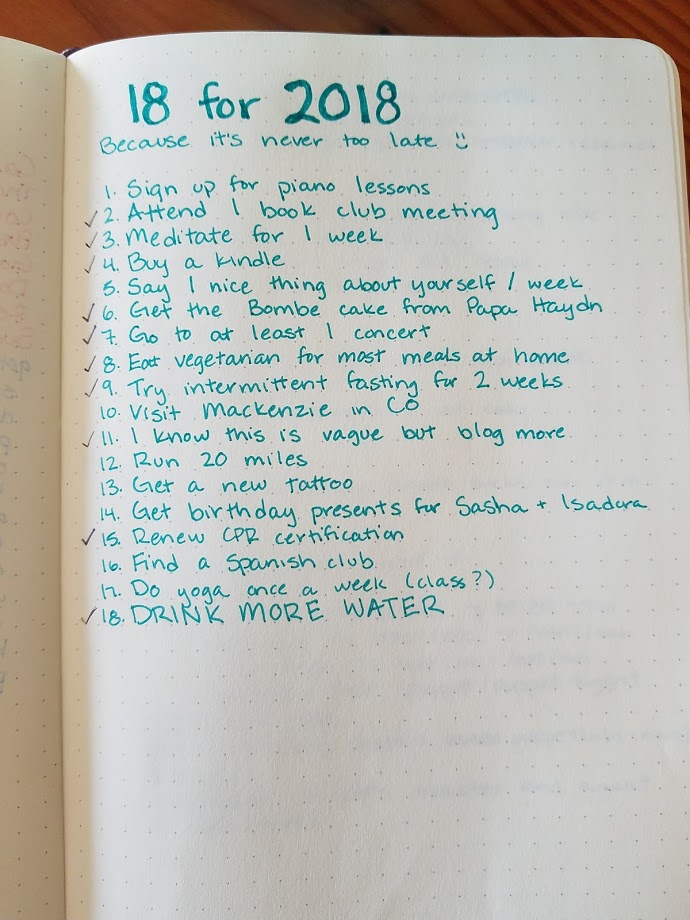 18 for 2018
Because it's never too late :)
1. Sign up for piano lessons
✓ 2. Attend 1 book club meeting
✓ 3. Meditate for 1 week
✓ 4. Buy a kindle
5. Say 1 nice thing about yourself / week
✓ 6. Get the Bombe cake from Papa Haydn
✓ 7. Go to at least 1 concert
✓ 8. Eat vegetarian for most meals at home
✓ 9. Try intermittent fasting for 2 weeks
10. Visit Mackenzie in CO
✓ 11. I know this is vague but blog more
12. Run 20 miles
13. Get a new tattoo
14. Get birthday presents for Sasha + Isadora
✓ 15. Renew CPR certification
16. Find a Spanish club
17. Do yoga once a week (class?)
✓ 18. DRINK MORE WATER